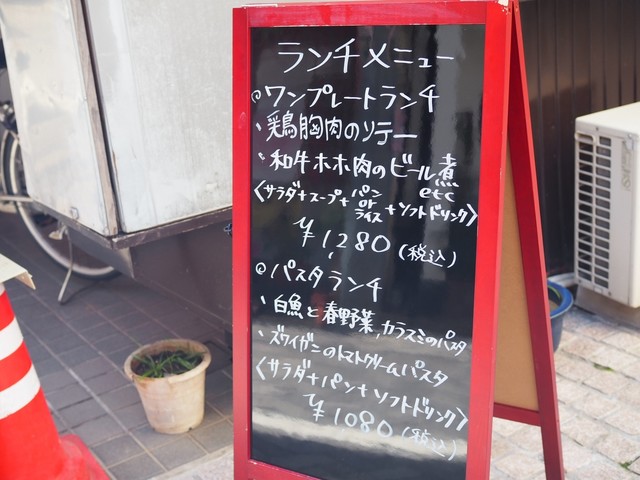 ランチメニュー
◎ワンプレートランチ
・鶏胸肉のソテー
・和牛ホホ肉のビール煮
etc
〈サラダ+スープ+パンorライス+ソフトドリンク〉
¥1,280(税込)
◎パスタランチ
・白魚と春野菜,カラスミのパスタ
・ズワイガニのトマトクリームパスタ
〈サラダ+パン+ソフトドリンク〉
¥1080(税込)